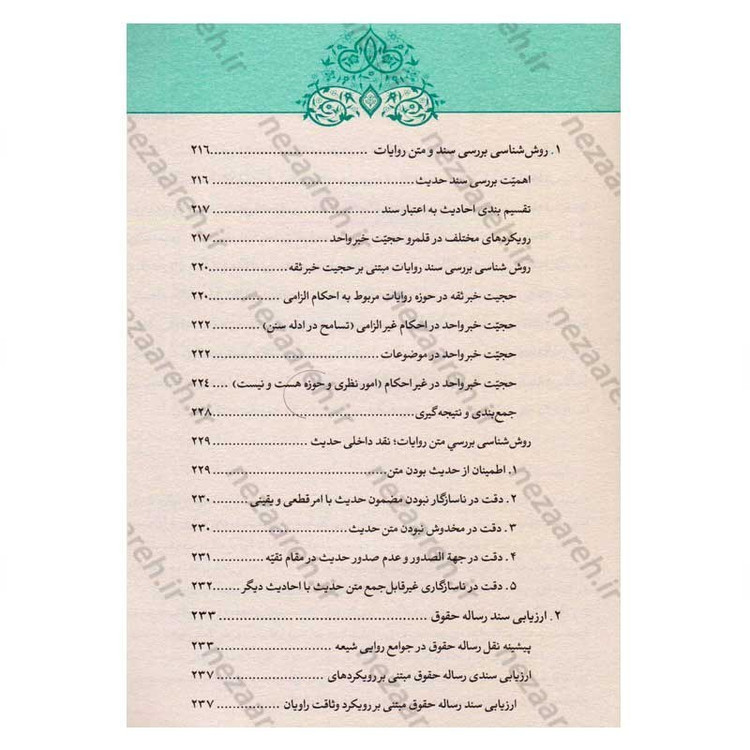 ۱. روش‌شناسی بررسی سند و متن روایات ......................................۲۱۶
اهمیّت بررسی سند حدیث ......................................... ۲۱۶
تقسیم بندی احادیث به اعتبار سند .............................. ۲۱۷
رویکردهای مختلف در قلمرو حجیّت خبر واحد .................... ۲۱۷
روش شناسی بررسی سند روایات مبتنی بر حجیت خبر ثقه ..................۲۲۰
حجیت خبر ثقه در حوزه روایات مربوط به احکام الزامی ............. ۲۲۰
حجیّت خبر واحد در احکام غیر الزامی (تسامح در ادله سنن) ............ ۲۲۲
حجیّت خبر واحد در موضوعات .................................... ۲۲۲
حجیّت خبر واحد در غیر احکام (امور نظری و حوزه هست و نیست) .... ۲۲۴
جمع‌بندی و نتیجه‌گیری ...........................................۲۲۸
روش‌شناسی بررسي متن روایات؛ نقد داخلی حدیث .................... ۲۲۹
۱. اطمینان از حدیث بودن متن..................................... ۲۲۹
۲. دقت در ناسازگار نبودن مضمون حدیث با امر قطعی و یقینی ......... ۲۳۰
۳. دقت در مخدوش نبودن متن حدیث ............................... ۲۳۰
۴. دقت در جهة الصدور و عدم صدور حدیث در مقام تقیّه ............. ۲۳۱
۵. دقت در ناسازگاری غیرقابل‌جمع متن حدیث با احادیث دیگر .......۲۳۲
۲. ارزیابی سند رساله حقوق ............................................... ۲۳۳
پیشینه نقل رساله حقوق در جوامع روایی شیعه .................... ۲۳۳
ارزیابی سندی رساله حقوق مبتنی بر رویکردهای .................. ۲۳۷
ارزیابی سند رساله حقوق مبتنی بر رویکرد وثاقت راویان ............... ۲۳۷
nezaareh.ir